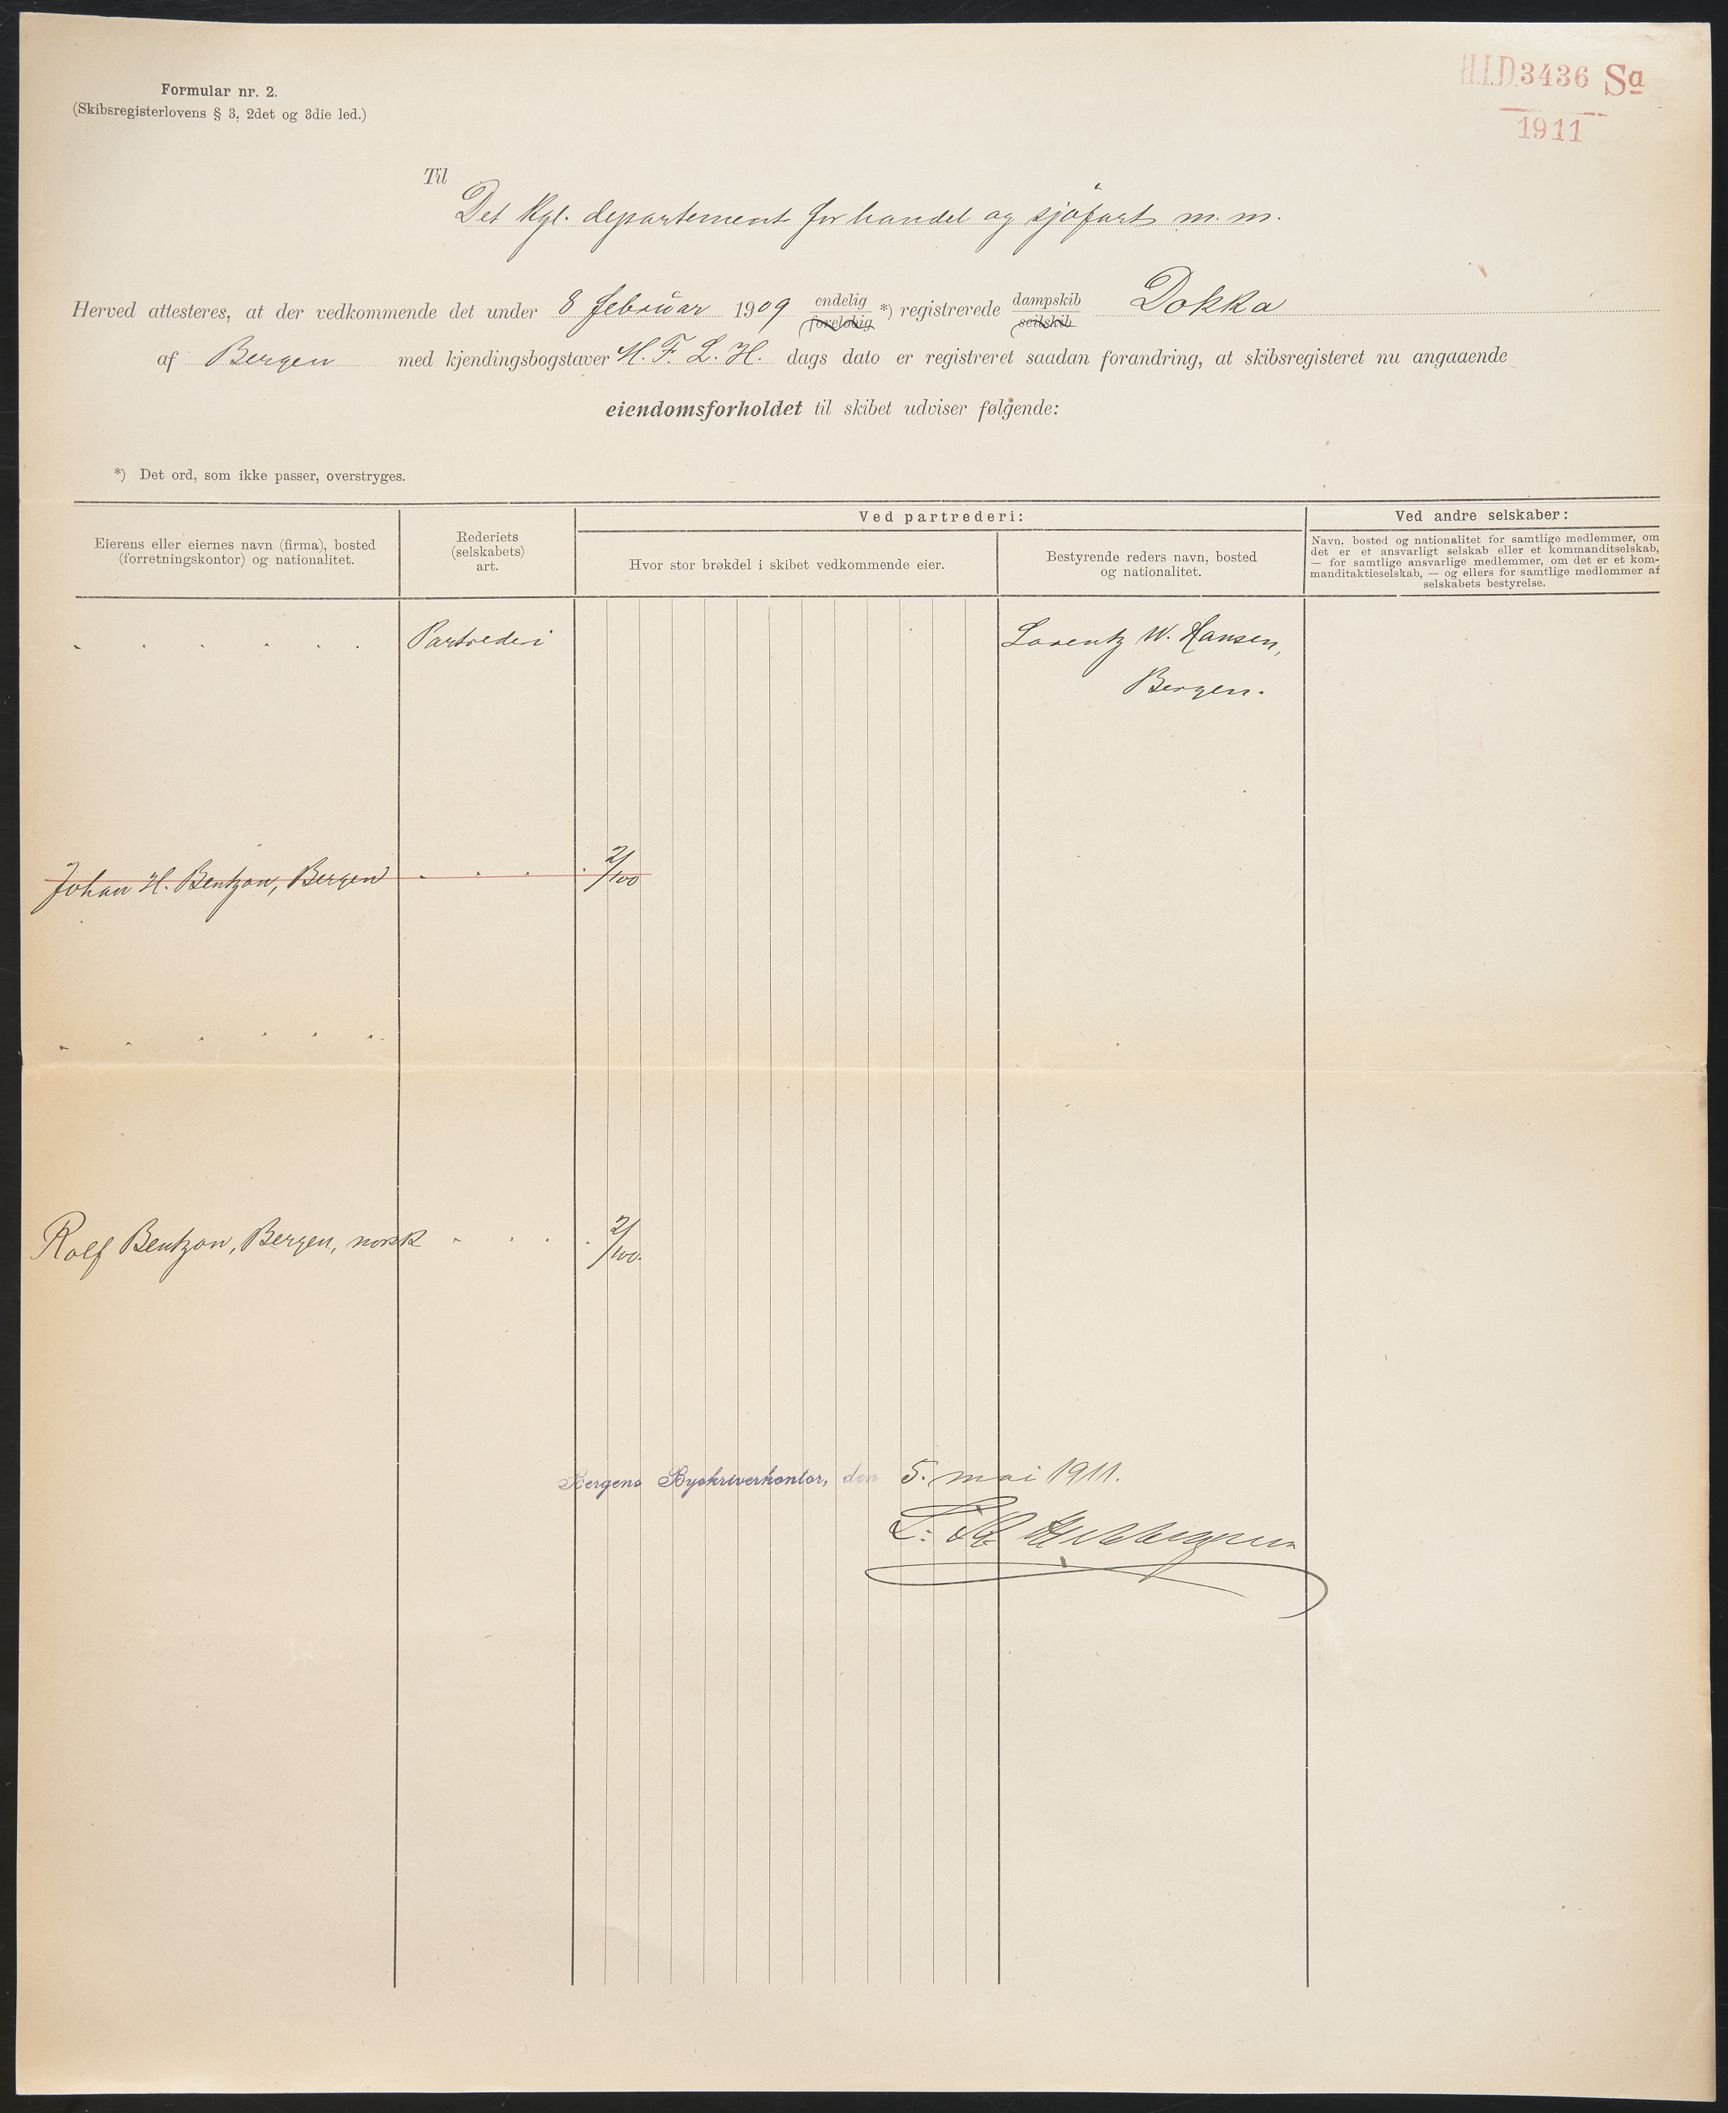 Formular nr. 2.
(Skibsregisterlovens § 3, 2det og 3die led.)
H.I.D. 3436 Sa
1911
Til
Det Kgl. departement for handel og sjøfart m. m.
Herved attesteres, at der vedkommende det under 8 februar 1909 endelig foreløbig *) registrerede dampskib seilskib Dokka
af Bergen med kjendingsbogstaver M. F. L. H. dags dato er registreret saadan forandring, at skibsregisteret nu angaaende
eiendomsforholdet til skibet udviser følgende:
*) Det ord, som ikke passer, overstryges.
Eierens eller eiernes navn (firma), bosted
(forretningskontor) og nationalitet.
Rederiets
(selskabets)
art.
Ved partrederi:
Hvor stor brøkdel i skibet vedkommende eier.
Bestyrende reders navn, bosted
og nationalitet.
Ved andre selskaber:
Navn, bosted og nationalitet for samtlige medlemmer, om
det er et ansvarligt selskab eller et kommanditselskab,
— for samtlige ansvarlige medlemmer, om det er et kom-
manditaktieselskab, — og ellers for samtlige medlemmer af
selskabets bestyrelse.
Partrederi
Lorentz W. Hansen,
Bergen.
Johan H. Bentzon, Bergen 2/100
Rolf Bentzon, Bergen, norsk 2/100.
Bergens Byskriverkontor, den 5. mai 1911.